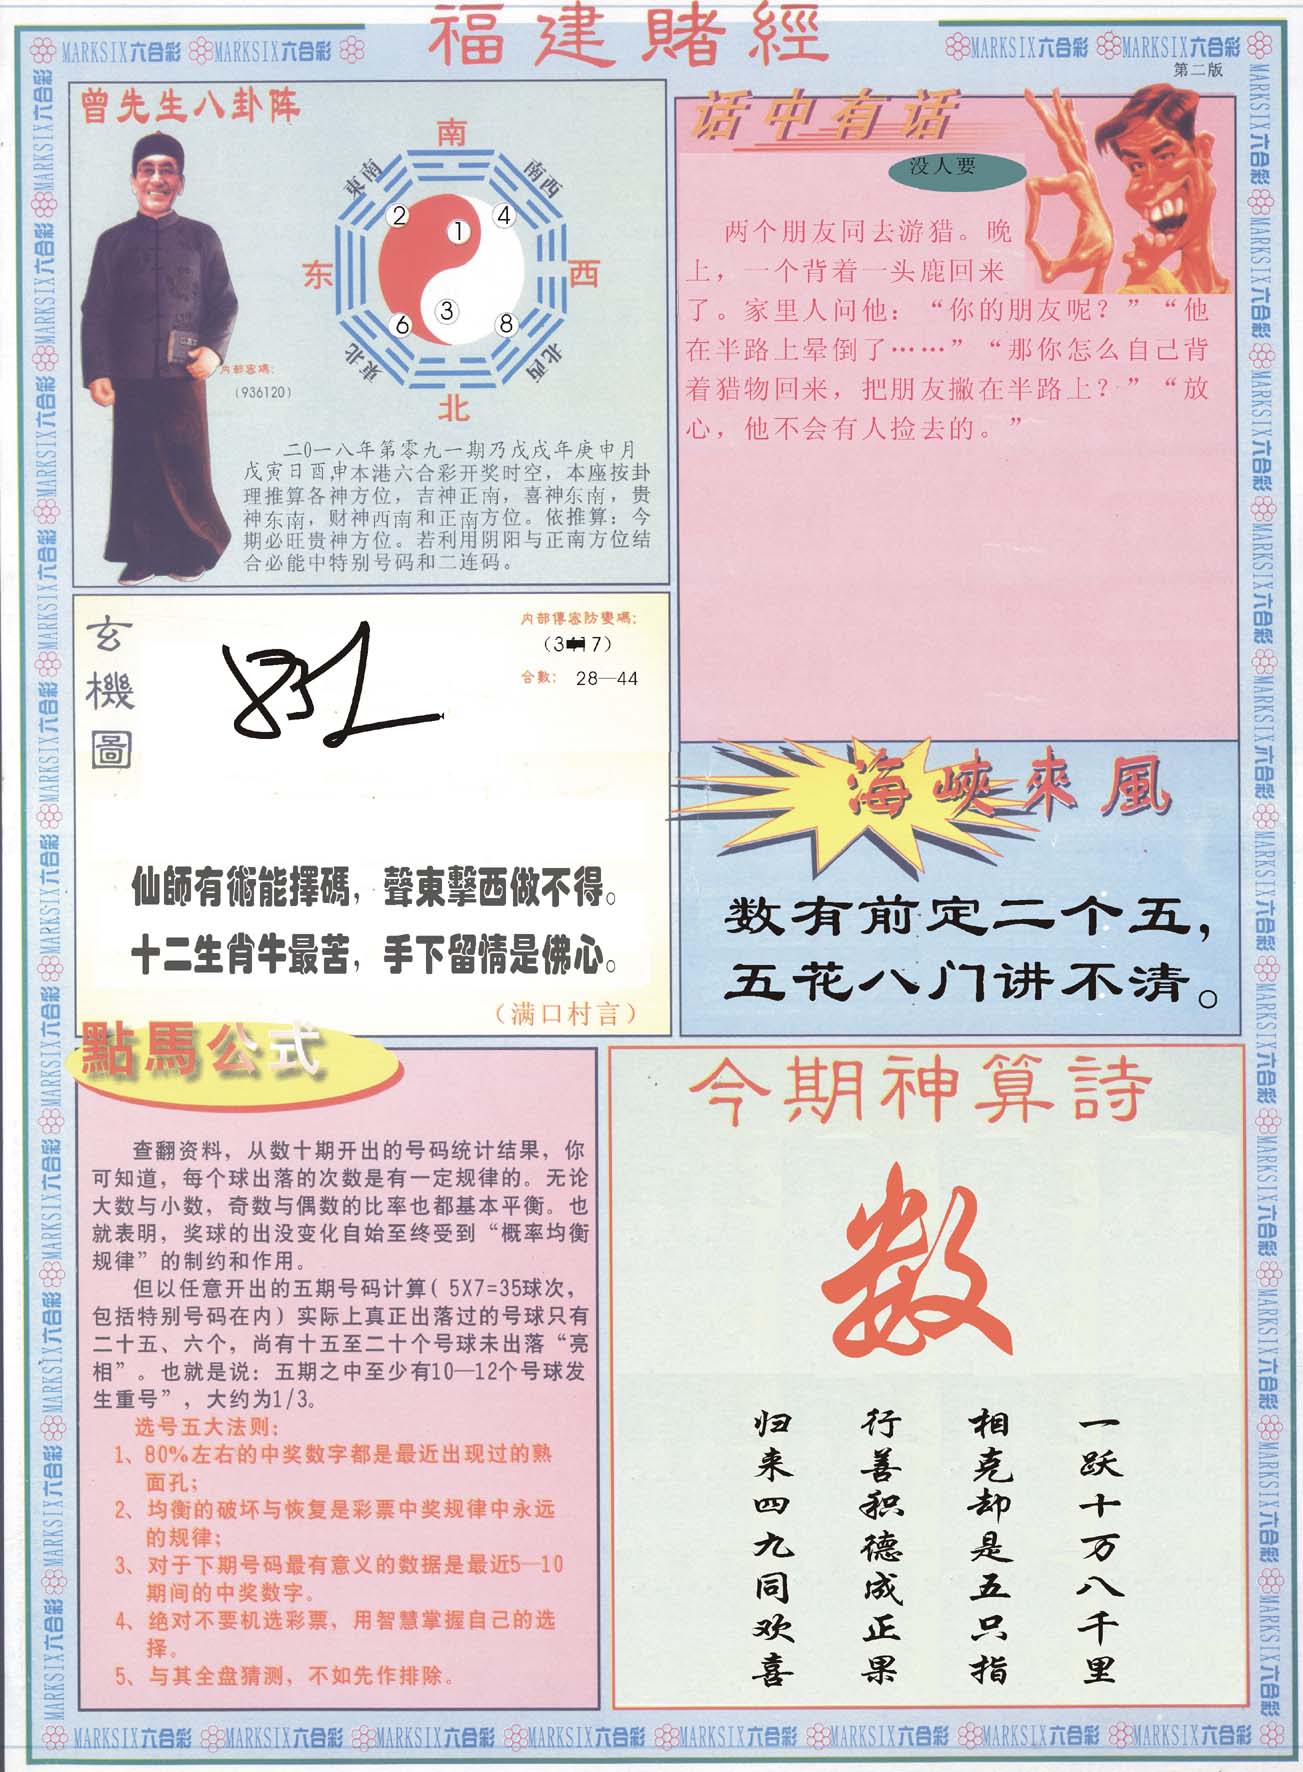 福建賭經
MARKSIX六合彩 MARKSIX六合彩
MARKSIX六合彩 MARKSIX六合彩
第二版
曾先生八卦阵
南
東南
南西
2
1
4
东
西
3
6
8
東北
北西
北
内部密碼：
(936120)
二0一八年第零九一期乃戊戌年庚申月
戊寅日酉,申本港六合彩开奖时空，本座按卦
理推算各神方位，吉神正南，喜神东南，贵
神东南，财神西南和正南方位。依推算：今
期必旺贵神方位。若利用阴阳与正南方位结
合必能中特别号码和二连码。
话中有话
没人要
两个朋友同去游猎。晚
上，一个背着一头鹿回来
了。家里人问他：“你的朋友呢？”“他
在半路上晕倒了……”“那你怎么自己背
着猎物回来，把朋友撇在半路上？”“放
心，他不会有人捡去的。”
玄機圖
内部傳密防變碼：
合數： 28—44
仙師有術能擇碼，聲東擊西做不得。
十二生肖牛最苦，手下留情是佛心。
（满口村言）
海峽來風
数有前定二个五，
五花八门讲不清。
點馬公式
查翻资料，从数十期开出的号码统计结果，你
可知道，每个球出落的次数是有一定规律的。无论
大数与小数，奇数与偶数的比率也都基本平衡。也
就表明，奖球的出没变化自始至终受到“概率均衡
规律”的制约和作用。
但以任意开出的五期号码计算( 5X7=35球次，
包括特别号码在内）实际上真正出落过的号球只有
二十五、六个，尚有十五至二十个号球未出落“亮
相”。也就是说：五期之中至少有10—12个号球发
生重号”，大约为1/3。
选号五大法则：
1、80%左右的中奖数字都是最近出现过的熟
面孔；
2、均衡的破坏与恢复是彩票中奖规律中永远
的规律；
3、对于下期号码最有意义的数据是最近5—10
期间的中奖数字。
4、绝对不要机选彩票，用智慧掌握自己的选
择。
5、与其全盘猜测，不如先作排除。
今期神算詩
数
一跃十万八千里
相克却是五只指
行善积德成正果
归来四九同欢喜
MARKSIX六合彩 MARKSIX六合彩 MARKSIX六合彩 MARKSIX六合彩 MARKSIX六合彩 MARKSIX六合彩 MARKSIX六合彩 MARKSIX六合彩